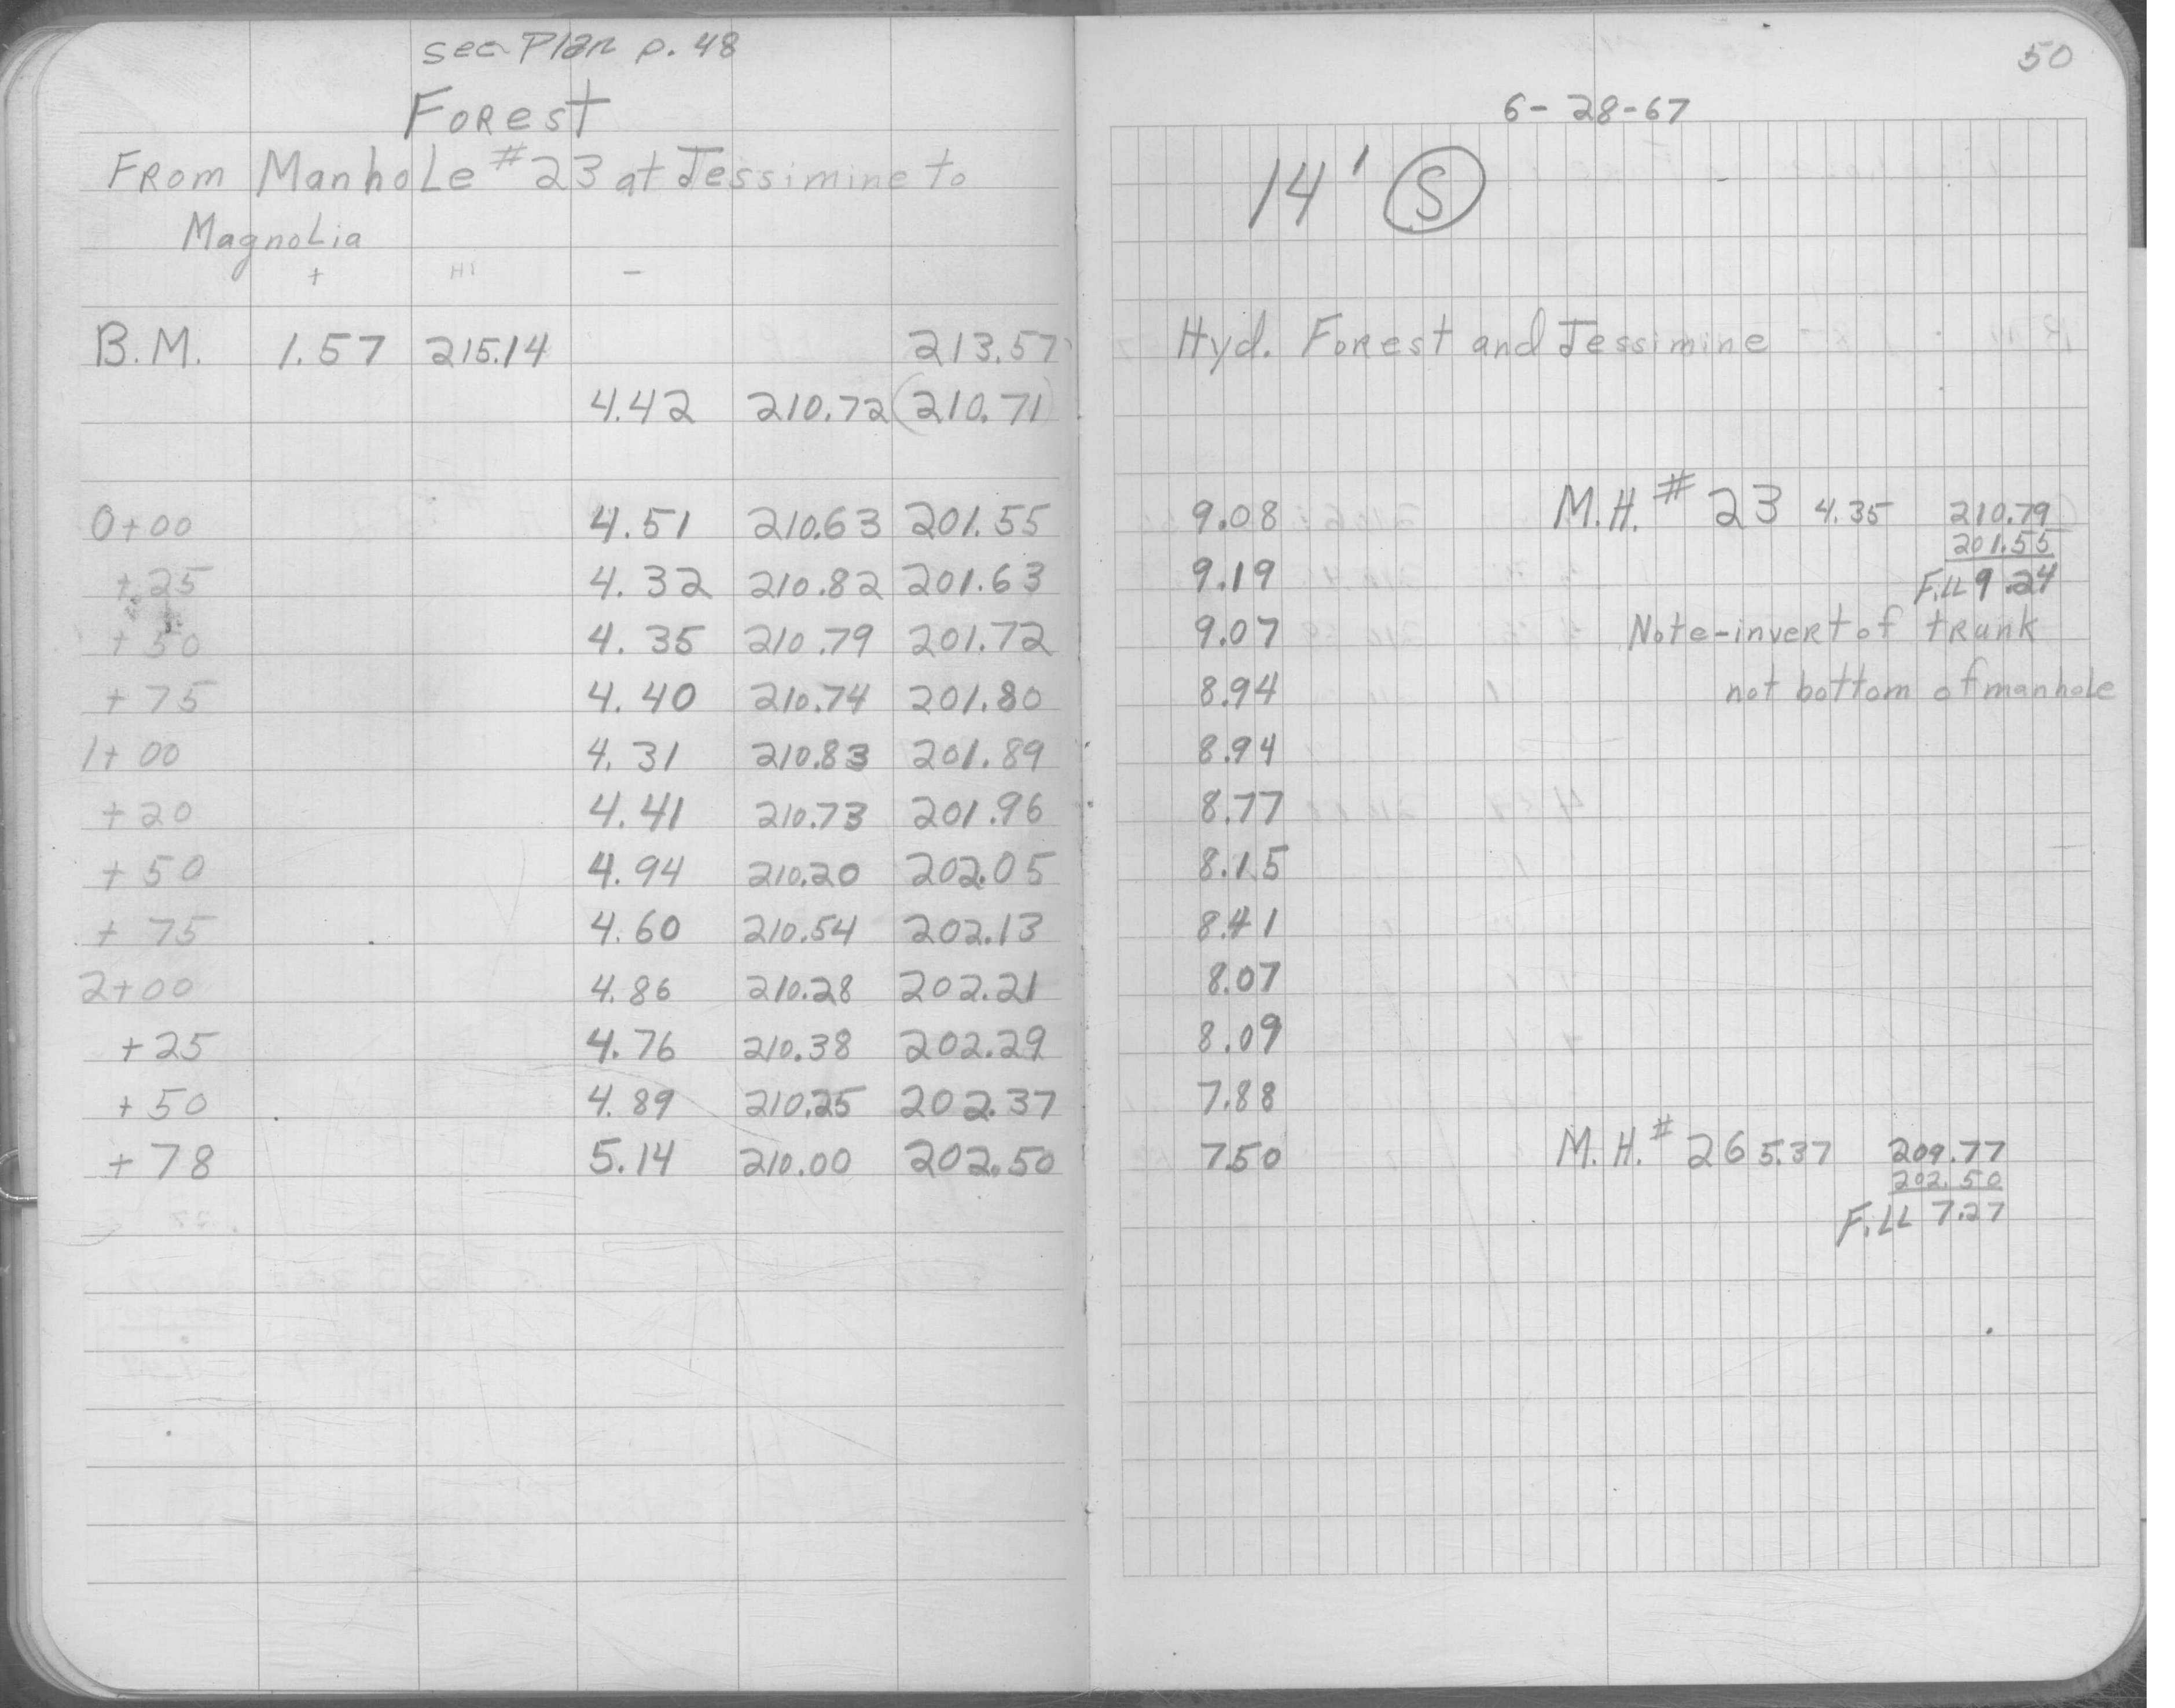 see Plan p. 48
Forest
From Manhole #23 at Jessimine to
Magnolia
+ HI −
B.M. 1.57 215.14 213.57
4.42 210.72 (210.71)
0+00 4.51 210.63 201.55
+25 4.32 210.82 201.63
+50 4.35 210.79 201.72
+75 4.40 210.74 201.80
1+00 4.31 210.83 201.89
+20 4.41 210.73 201.96
+50 4.94 210.20 202.05
+75 4.60 210.54 202.13
2+00 4.86 210.28 202.21
+25 4.76 210.38 202.29
+50 4.89 210.25 202.37
+78 5.14 210.00 202.50
50
6-28-67
14' S
Hyd. Forest and Jessimine
9.08 M.H. #23 4.35 210.79
201.55
9.19 Fill 9.24
9.07 Note-invert of trunk
8.94 not bottom of manhole
8.94
8.77
8.15
8.41
8.07
8.09
7.88
7.50 M.H. #26 5.37 209.77
202.50
Fill 7.27